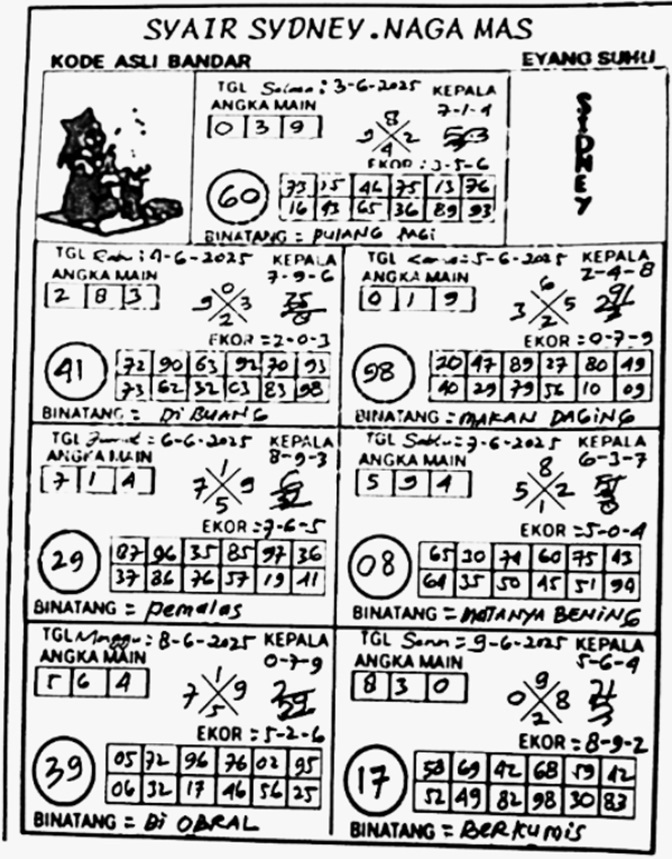 SYAIR SYDNEY.NAGA MAS
KODE ASLI BANDAR
EYANG SUHU
TGL : 3-6-2025 KEPALA
ANGKA MAIN 7-1-4
0 3 9
8
9 2
4
EKOR : 3-5-6
60
73 15 46 75 13 76
16 43 65 36 89 93
BINATANG =
SIDNEY
TGL Rabu : 4-6-2025 KEPALA
ANGKA MAIN 7-9-6
2 8 3
0
9 3
2
EKOR = 2-0-3
41
72 90 63 92 70 93
73 62 32 03 83 98
BINATANG = Di BUANG
TGL Kamis = 5-6-2025 KEPALA
ANGKA MAIN 2-4-8
0 1 9
6
3 5
2
EKOR = 0-7-9
98
20 47 89 27 80 49
40 29 79 56 10 09
BINATANG = MAKAN DAGING
TGL Jumat = 6-6-2025 KEPALA
ANGKA MAIN 8-9-3
7 1 4
1
7 9
5
EKOR = 7-6-5
29
87 96 35 85 97 36
37 86 76 57 19 41
BINATANG = pemalas
TGL Sabtu = 7-6-2025 KEPALA
ANGKA MAIN 6-3-7
5 9 4
8
5 2
1
EKOR = 5-0-4
08
65 30 74 60 75 43
64 35 50 45 51 94
BINATANG = MATANYA BENING
TGL Minggu : 8-6-2025 KEPALA
ANGKA MAIN 0-7-9
5 6 4
1
7 9
5
EKOR = 5-2-6
39
05 72 96 76 02 95
06 32 17 46 56 25
BINATANG = Di OBRAL
TGL Senin = 9-6-2025 KEPALA
ANGKA MAIN 5-6-4
8 3 0
9
0 8
2
EKOR = 8-9-2
17
58 69 42 68 59 42
52 49 82 98 30 83
BINATANG = BERKUMIS